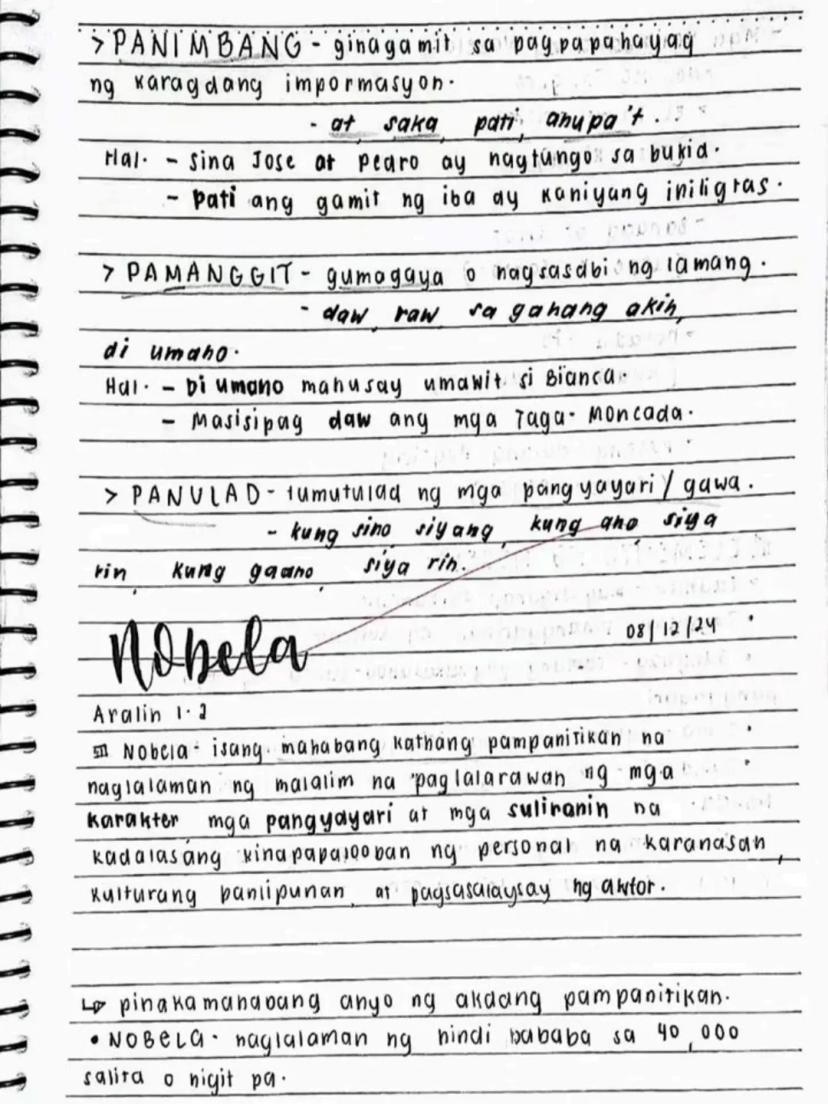 > PANIMBANG - ginagamit sa pagpapahayag
ng karagdang impormasyon.
- at, saka, pati, anupa't.
Hal. - Sina Jose at Pedro ay nagtungo sa bukid.
- Pati ang gamit ng iba ay kaniyang iniligtas.
> PAMANGGIT - gumagaya o nagsasabi ng lamang.
- daw, raw, sa gahang akin,
di umano.
Hal. - Di umano mahusay umawit si Bianca.
- Masisipag daw ang mga Taga-Moncada.
> PANULAD - tumutulad ng mga pangyayari/gawa.
- kung sino siyang, kung ano, siya
rin, kung gaano, siya rin.
Nobela
08/12/24
Aralin 1.2
Nobela - isang mahabang kathang pampanitikan na
naglalaman ng malalim na paglalarawan ng mga
karakter mga pangyayari at mga suliranin na
kadalasang kinapapalooban ng personal na karanasan,
kulturang panlipunan, at pagsasalaysay ng aktor.
↳ pinakamahabang anyo ng akdang pampanitikan.
• NOBELA - naglalaman ng hindi bababa sa 40,000
salita o higit pa.